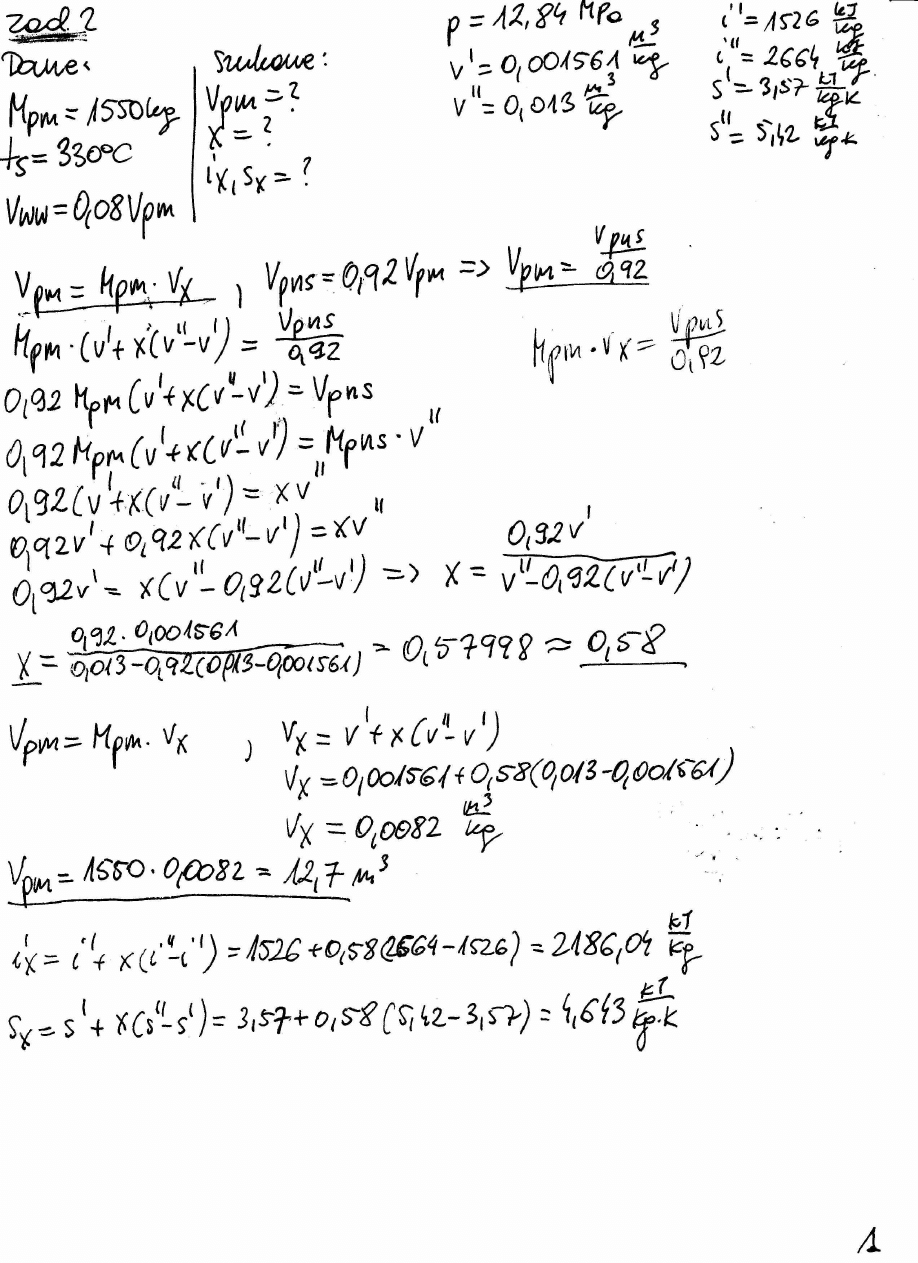 zad. 2
Dane:
Mpm = 1550 kg
ts = 330°C
Vww = 0,08 Vpm
Szukane:
Vpm = ?
x = ?
ix, sx = ?
p = 12,84 MPa
v' = 0,001561 m³/kg
v'' = 0,013 m³/kg
i' = 1526 kJ/kg
i'' = 2664 kJ/kg
s' = 3,57 kJ/kgK
s'' = 5,42 kJ/kgK
Vpm = Mpm · vx , Vpns = 0,92 Vpm => Vpm = Vpns/0,92
Mpm · (v' + x(v'' - v') = Vpns/0,92
Mpm · vx = Vpns/0,92
0,92 Mpm (v' + x(v'' - v') = Vpns
0,92 Mpm (v' + x(v'' - v') = Mpns · v''
0,92 (v' + x(v'' - v') = xv''
0,92v' + 0,92x(v'' - v') = xv''
0,92v' = x(v'' - 0,92(v'' - v') => x = 0,92v'/v'' - 0,92(v'' - v')
x = 0,92 · 0,001561/0,013 - 0,92(0,013 - 0,001561) = 0,57998 ≈ 0,58
Vpm = Mpm · vx , vx = v' + x(v'' - v')
vx = 0,001561 + 0,58(0,013 - 0,001561)
vx = 0,0082 m³/kg
Vpm = 1550 · 0,0082 = 12,7 m³
ix = i' + x(i'' - i') = 1526 + 0,58(2664 - 1526) = 2186,04 kJ/kg
sx = s' + x(s'' - s') = 3,57 + 0,58(5,42 - 3,57) = 4,643 kJ/kg·K
1